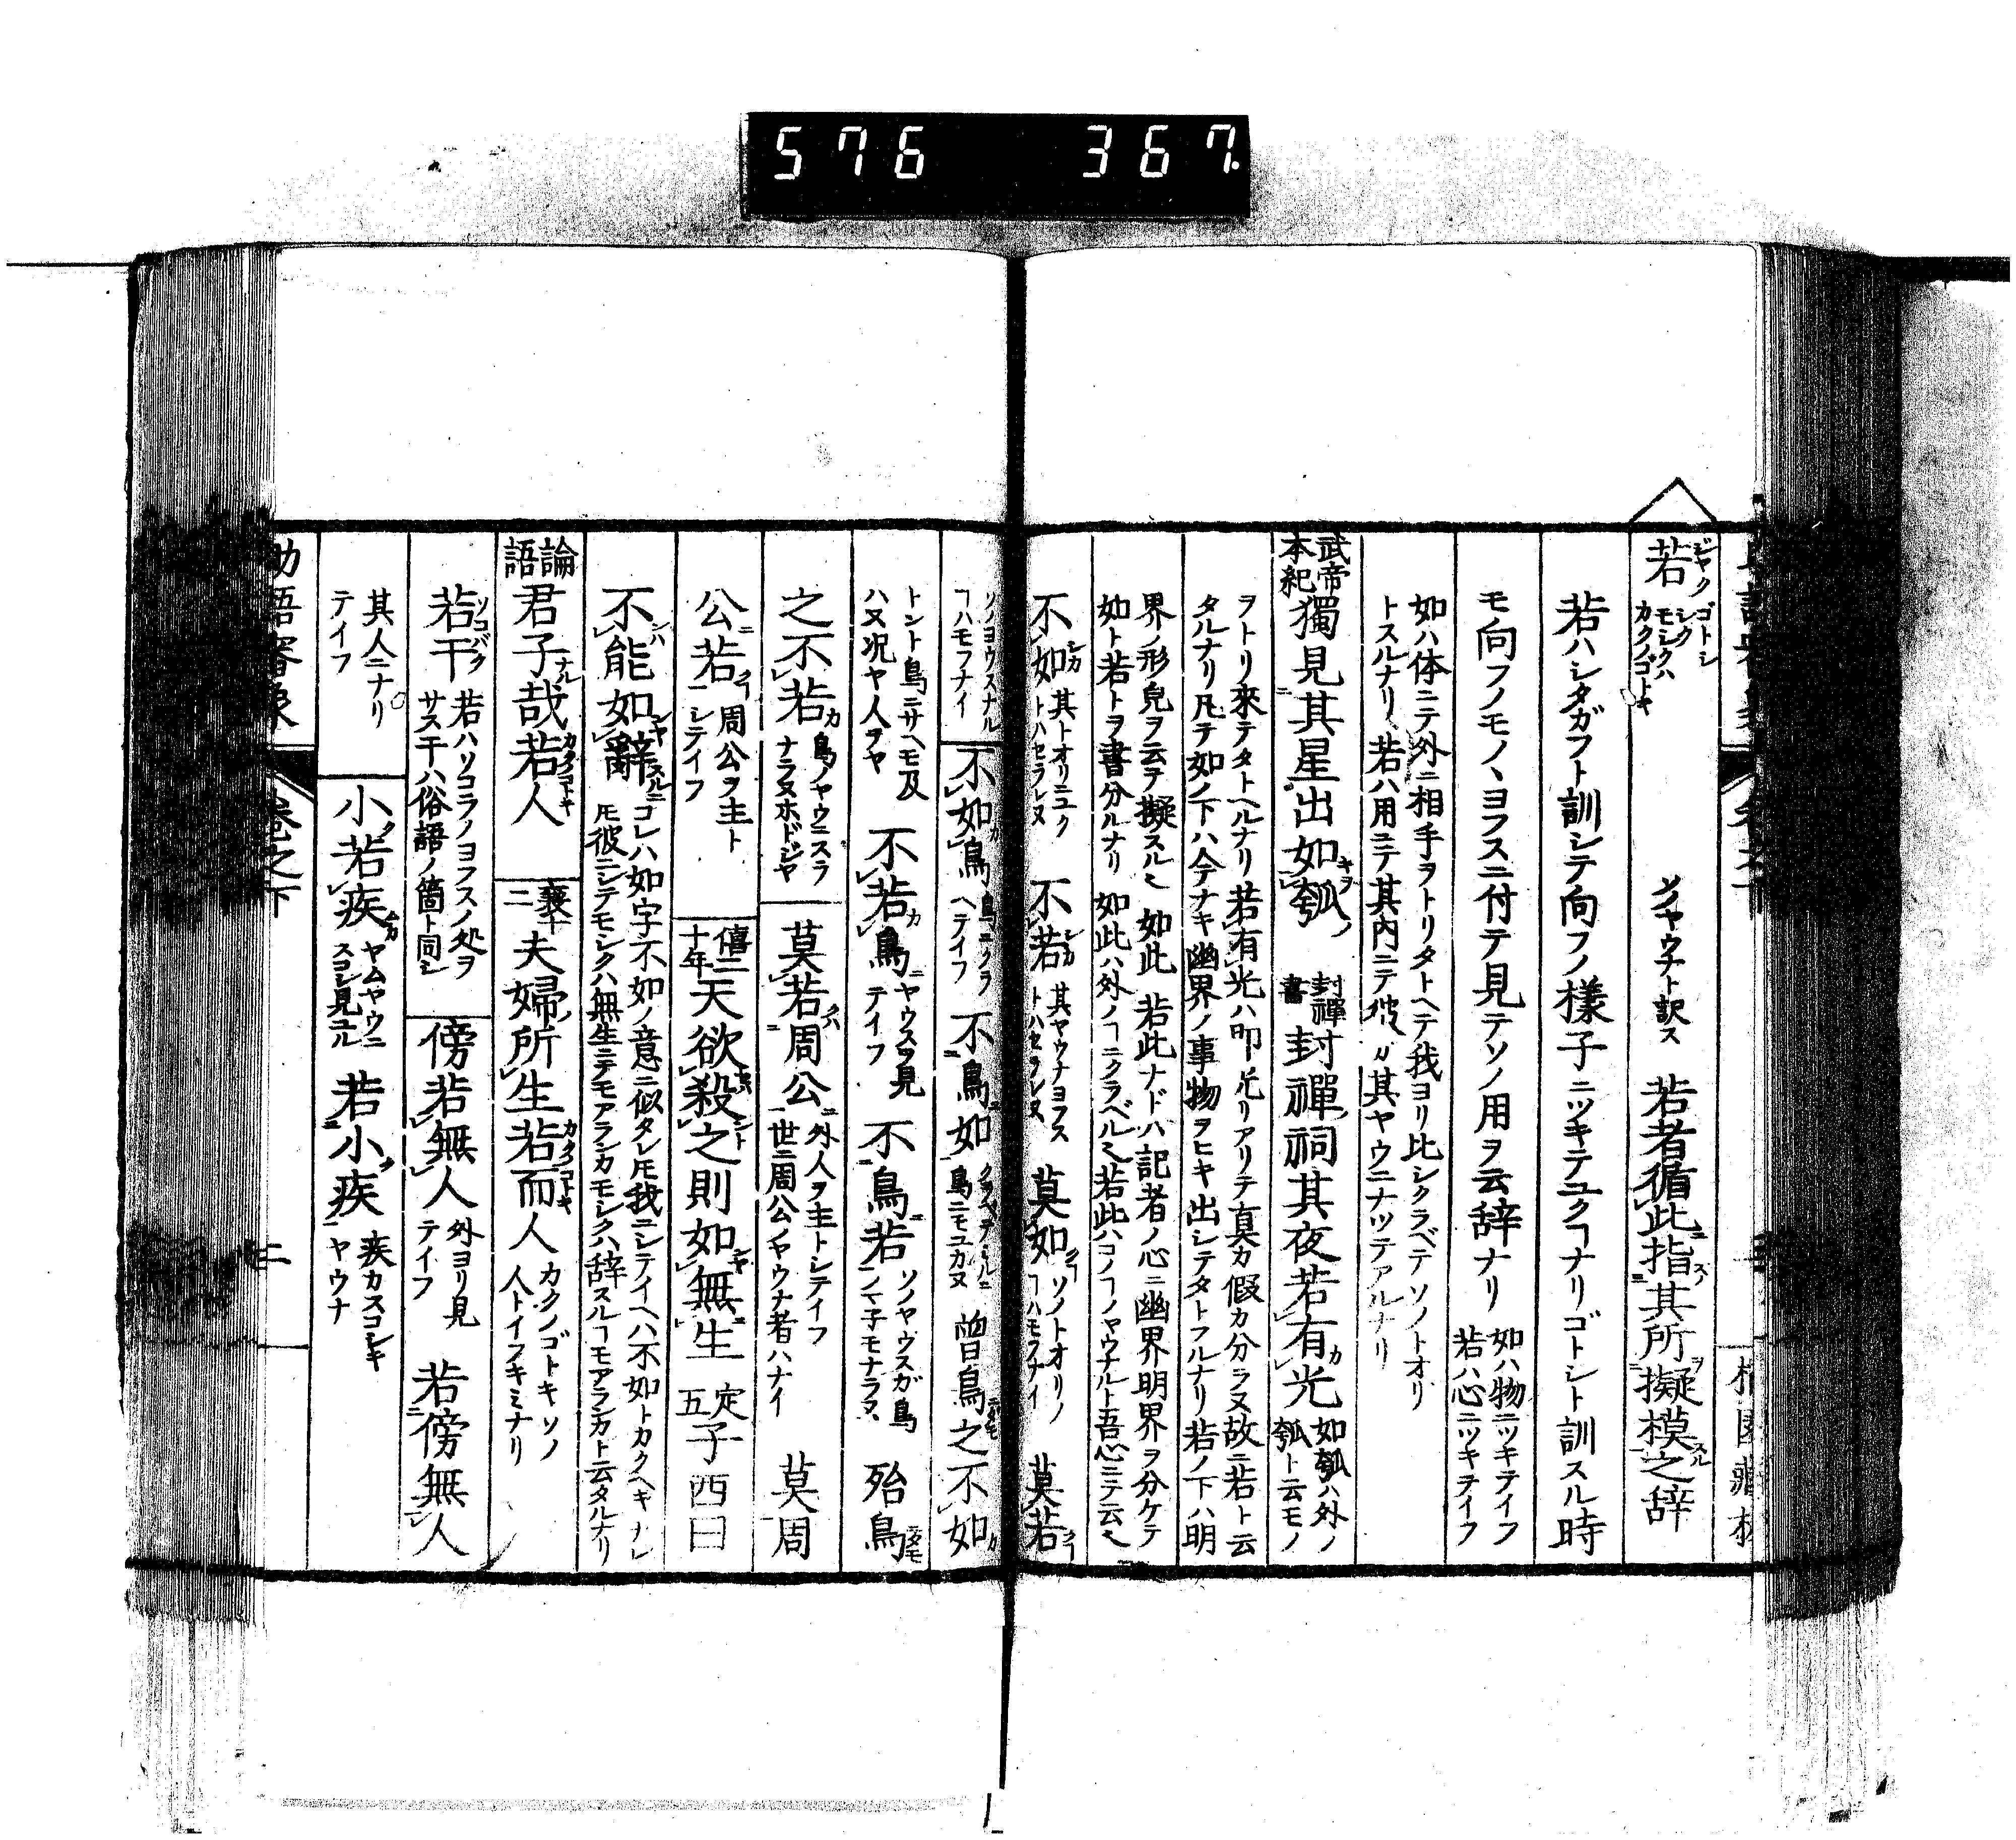 576 367.
若 ジャク ゴトシ モシクハ シク カクノゴトキ ソノヤウナト訳ス 若者循此指其所擬模之辞
若ハシタガフト訓シテ向フノ様子ニツキテユクヿナリゴトシト訓スル時
モ向フノモノヽヨフスニ付テ見テソノ用ヲ云辞ナリ 如ハ物ニツキテイフ
若ハ心ニツキテイフ
如ハ体ニテ外ニ相手ヲトリタトヘテ我ヨリ比シクラベテソノトオリ
トスルナリ若ハ用ニテ其内ニテ彼カ其ヤウニナツテアルナリ
武帝本紀 獨見其星出如瓠 封禪書 封禪祠其夜若有光 如瓠ハ外ノ
瓠ト云モノ
ヲトリ來テタトヘルナリ若有光ハ叩光リアリテ真カ假カ分ラヌ故ニ若ト云
タルナリ凡テ如ノ下ハ今テナキ幽界ノ事物ヲヒキ出シテタトフルナリ若ノ下ハ明
界ノ形皃ヲ云ヲ擬スル〻如此 若此ナドハ記者ノ心ニ幽界明界ヲ分ケテ
如ト若トヲ書分ルナリ 如此ハ外ノヿニクラベル〻若此ハコノヿノヤウナルト吾心ニテ云〻
不如 其トオリニユク
トハセラレヌ 不若 其ヤウナヨフス
トハセラレヌ 莫如 ソノトオリノ
ヿハモフナイ 莫若
ソノヨウスナル
ヿハモフナイ 不如鳥 鳥ニクラ
ヘテイフ 不鳥如 クラベテミルニ
鳥ニモユカヌ 曽鳥之不如
トント鳥ニサヘモ及
ハヌ况ヤ人ヲヤ 不若鳥 ニヤウスヲ見
テイフ 不鳥若 ソノヤウスガ鳥
ノマ子モナラヌ 殆鳥
之不若 鳥ノヤウニスラ
ナラヌホドジヤ 莫若周公 外人ヲ主トシテイフ
世ニ周公ノヤウナ者ハナイ 莫周
公若 周公ヲ主ト
シテイフ 僖二十年 天欲殺之則如無生 定五 子西曰
不能如辭 コレハ如字不如ノ意ニ似タレ𪜈我ニシテイヘハ不如トカクヘキナレ
𪜈彼ニシテモシクハ無生ニテモアランカモシクハ辞スルヿモアランカト云タルナリ
論語 君子哉若人 襄十二 夫婦所生若而人 カクノゴトキソノ
人トイフキミナリ
若干 ソコバク 若ハソコラノヨフスノ処ヲ
サス干ハ俗語ノ箇ト同シ 傍若無人 外ヨリ見
テイフ 若傍無人
其人ニナリ
テイフ 小若疾 ヤムヤウニ
スコシ見ユル 若小疾 疾カスコシキ
ヤウナ
助語審象 卷之下 二